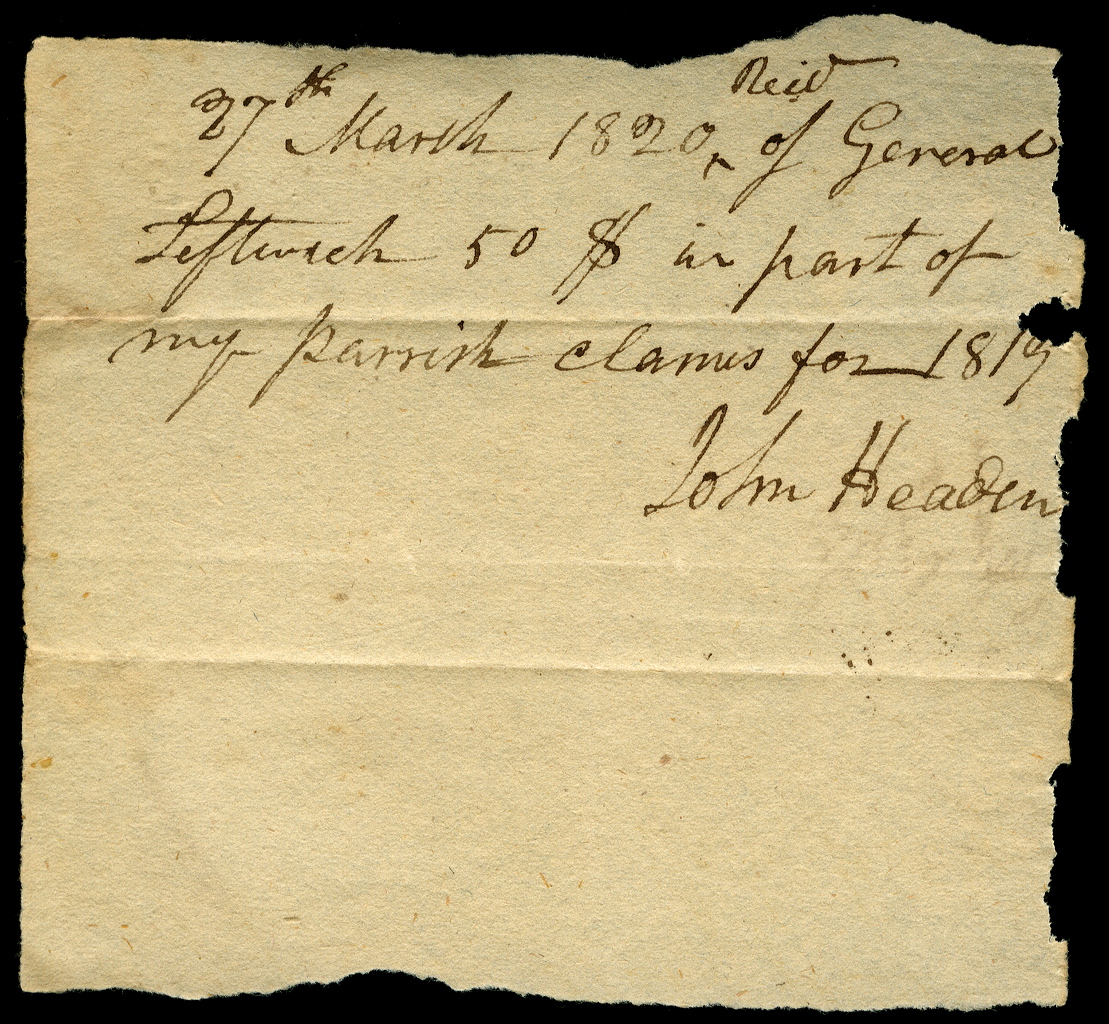 27th March 1820 ‸ Reid of General
Leftwich 50 $ in part of
my parrish clames for 1819
John Headen